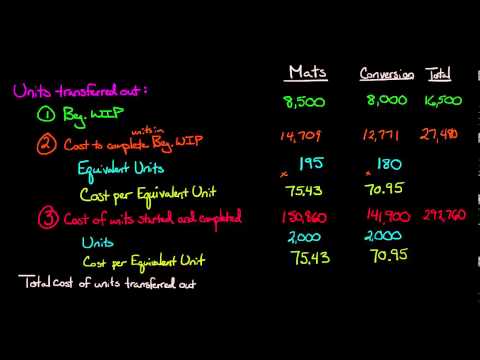 Mats Conversion Total
Units transferred out:
① Beg. WIP 8,500 8,000 16,500
units in
② Cost to complete Beg. WIP 14,709 12,771 27,480
Equivalent Units × 195 × 180
Cost per Equivalent Unit 75.43 70.95
③ Cost of units started and completed 150,860 141,900 292,760
Units 2,000 2,000
Cost per Equivalent Unit 75.43 70.95
Total cost of units transferred out